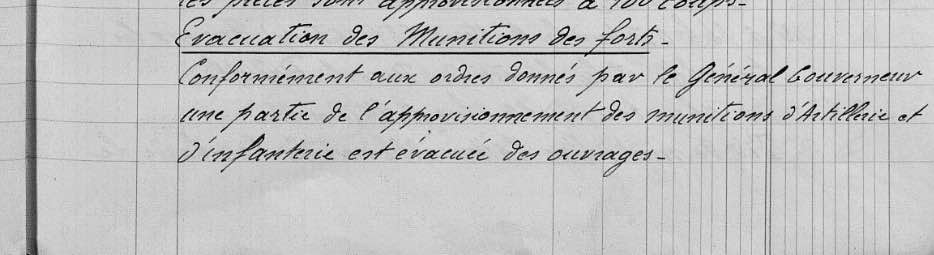 les pièces sont approvisionnées à 100 coups-
Evacuation des Munitions des forts-
Conformément aux ordres donnés par le Général Gouverneur
une partie de l'approvisionnement des munitions d'Artillerie et
d'infanterie est évacuée des ouvrages-